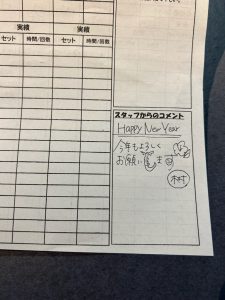 実績
実績
セット
時間/回数
セット
時間/回数
スタッフからのコメント
Happy New Year
今年もよろしく
お願いします